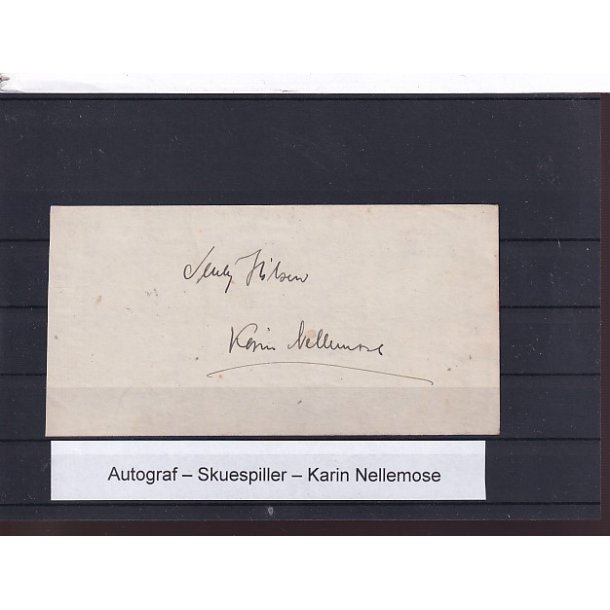 Venlig Hilsen
Karin Nellemose
Autograf – Skuespiller – Karin Nellemose